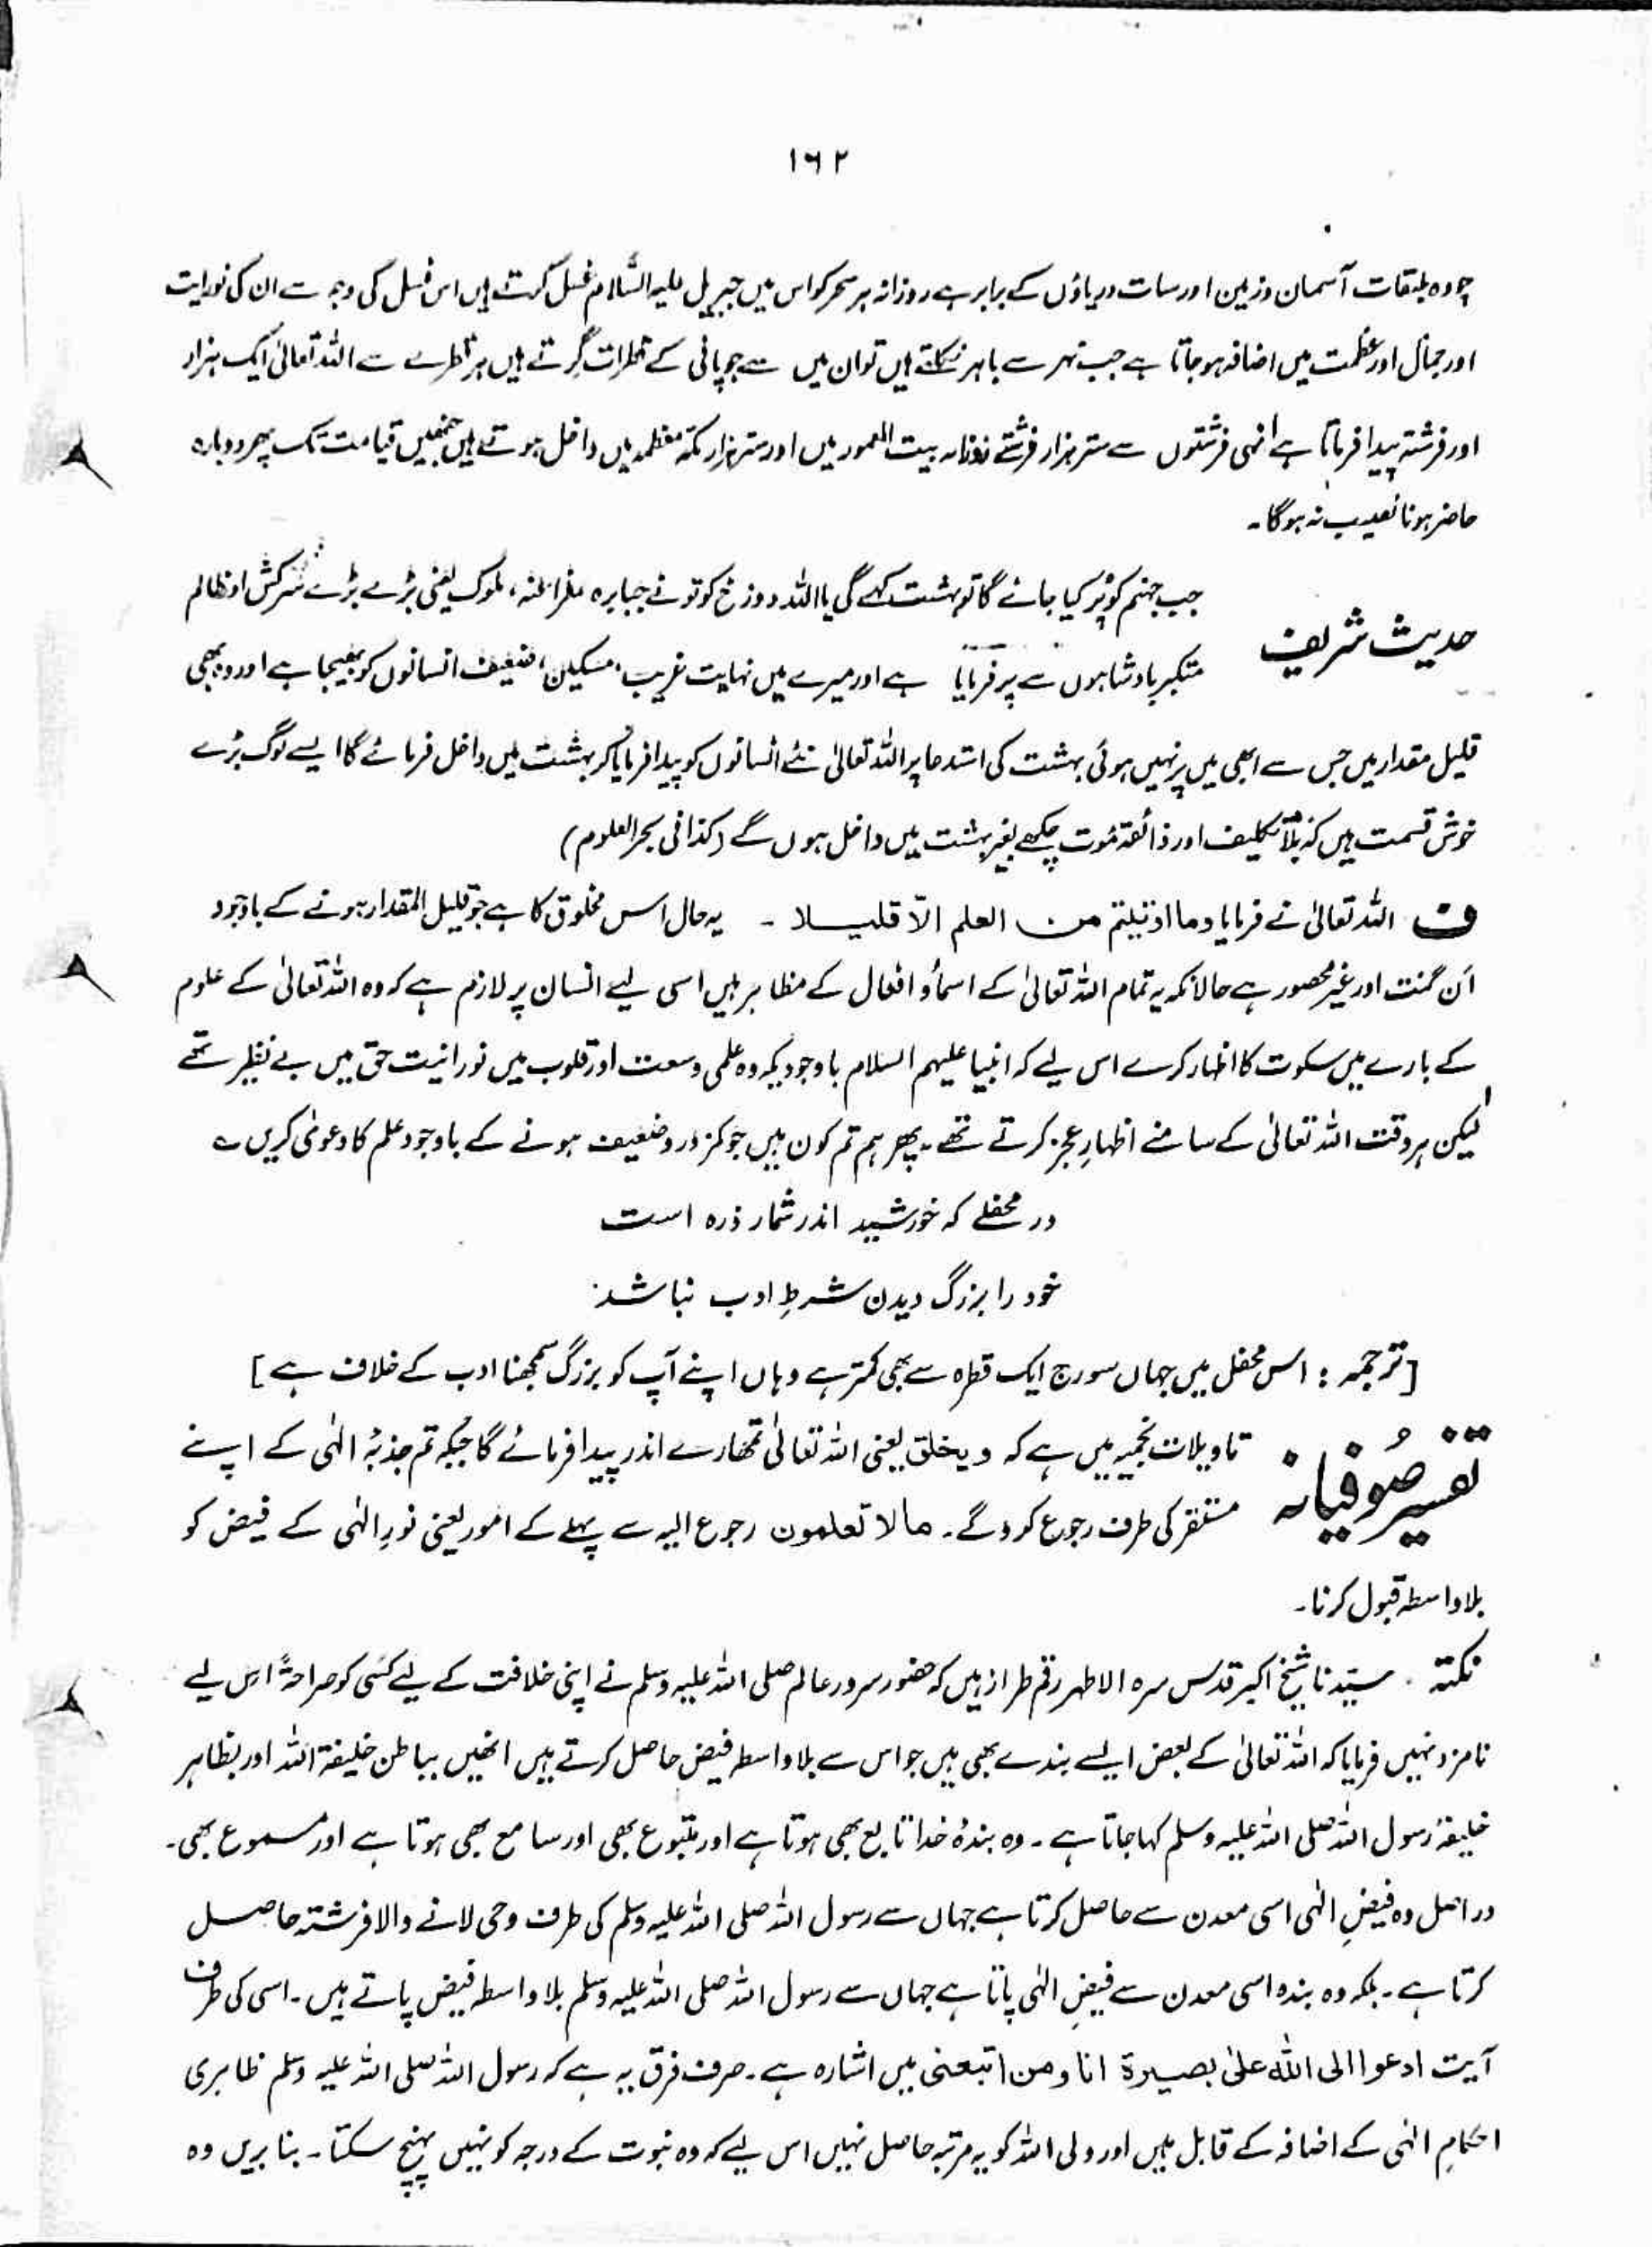 ۱۶۲
چودہ طبقات آسمان وزمین اور سات دریاؤں کے برابر ہے روزانہ ہر سحر کو اس میں جبریل علیہ السّلام غسل کرتے ہیں اس غسل کی وجہ سے ان کی نورانیت
اور جمال اور عظمت میں اضافہ ہو جاتا ہے جب نہر سے باہر نکلتے ہیں تو ان میں سے جو پانی کے قطرات گرتے ہیں ہر قطرے سے اللہ تعالیٰ ایک ہزار
اور فرشتہ پیدا فرماتا ہے انہی فرشتوں سے ستر ہزار فرشتے روزانہ بیت المعمور میں اور ستر ہزار مکّہ معظمہ میں داخل ہوتے ہیں جنھیں قیامت تک پھر دوبارہ
حاضر ہونا نصیب نہ ہوگا۔
حدیث شریف
جب جہنم کو پُر کیا جائے گا تو بہشت کہے گی یا اللہ دوزخ کو تو نے جبابرہ، فراعنہ، ملوک یعنی بڑے بڑے سرکش اور ظالم
متکبر بادشاہوں سے پر فرمایا ہے اور میرے میں نہایت غریب، مسکین، ضعیف انسانوں کو بھیجا ہے اور وہ بھی
قلیل مقدار میں جس سے ابھی میں پر نہیں ہوئی بہشت کی استدعا پر اللہ تعالیٰ نئے انسانوں کو پیدا فرما کر بہشت میں داخل فرمائے گا ایسے لوگ بڑے
خوش قسمت ہیں کہ بلا تکلیف اور ذائقۂ موت چکھے بغیر بہشت میں داخل ہوں گے (کذا فی بحر العلوم)
ف اللہ تعالیٰ نے فرمایا وما اوتیتم من العلم الّا قلیلا ۔ یہ حال اس مخلوق کا ہے جو قلیل المقدار ہونے کے باوجود
اَن گنت اور غیر محصور ہے حالانکہ یہ تمام اللہ تعالیٰ کے اسماؤ افعال کے مظاہر ہیں اسی لیے انسان پر لازم ہے کہ وہ اللہ تعالیٰ کے علوم
کے بارے میں سکوت کا اظہار کرے اس لیے کہ انبیا علیہم السلام باوجودیکہ وہ علمی وسعت اور قلوب میں نورانیت حق میں بے نظیر تھے
لیکن ہر وقت اللہ تعالیٰ کے سامنے اظہارِ عجز کرتے تھے۔ پھر ہم تم کون ہیں جو کمزور و ضعیف ہونے کے باوجود علم کا دعویٰ کریں ؎
در محفلے کہ خورشید اندر شمار ذرہ است
خود را بزرگ دیدن شرطِ ادب نباشد
[ترجمہ : اس محفل میں جہاں سورج ایک قطرہ سے بھی کمتر ہے وہاں اپنے آپ کو بزرگ سمجھنا ادب کے خلاف ہے]
تفسیر صُوفیانہ
تاویلات نجمیہ میں ہے کہ ویخلق یعنی اللہ تعالیٰ تمھارے اندر پیدا فرمائے گا جبکہ تم جذبۂ الٰہی کے اپنے
مستقر کی طرف رجوع کرو گے۔ مالا تعلمون رجوع الیہ سے پہلے کے امور یعنی نورِ الٰہی کے فیض کو
بلا واسطہ قبول کرنا۔
نکتہ ۔ سیّدنا شیخ اکبر قدس سرہ الاطہر رقم طراز ہیں کہ حضور سرور عالم صلی اللہ علیہ وسلم نے اپنی خلافت کے لیے کسی کو صراحۃً اس لیے
نامزد نہیں فرمایا کہ اللہ تعالیٰ کے بعض ایسے بندے بھی ہیں جو اس سے بلا واسطہ فیض حاصل کرتے ہیں انھیں بباطن خلیفۃ اللہ اور بظاہر
خلیفۂ رسول اللہ صلی اللہ علیہ وسلم کہا جاتا ہے۔ وہ بندۂ خدا تابع بھی ہوتا ہے اور متبوع بھی اور سامع بھی ہوتا ہے اور مسموع بھی۔
در اصل وہ فیضِ الٰہی اسی معدن سے حاصل کرتا ہے جہاں سے رسول اللہ صلی اللہ علیہ وسلم کی طرف وحی لانے والا فرشتہ حاصل
کرتا ہے۔ بلکہ وہ بندہ اسی معدن سے فیضِ الٰہی پاتا ہے جہاں سے رسول اللہ صلی اللہ علیہ وسلم بلا واسطہ فیض پاتے ہیں۔ اسی کی طرف
آیت ادعوا الی اللہ علیٰ بصیرۃ انا ومن اتبعنی میں اشارہ ہے۔ صرف فرق یہ ہے کہ رسول اللہ صلی اللہ علیہ وسلم ظاہری
احکامِ الٰہی کے اضافہ کے قابل ہیں اور ولی اللہ کو یہ مرتبہ حاصل نہیں اس لیے کہ وہ نبوت کے درجہ کو نہیں پہنچ سکتا۔ بنا بریں وہ